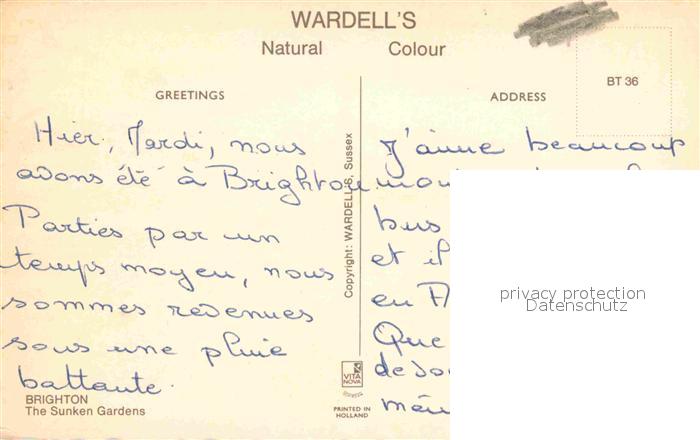 WARDELL'S
Natural Colour
BT 36
GREETINGS
ADDRESS
Hier, Mardi, nous
avons été à Brighton
Parties par un
temps moyen, nous
sommes revenues
sous une pluie
battante.
BRIGHTON
The Sunken Gardens
Copyright: WARDELL'S, Sussex
VITA NOVA
PRINTED IN
HOLLAND
J'aime beaucoup
bus
et il
en
Que
privacy protection
Datenschutz